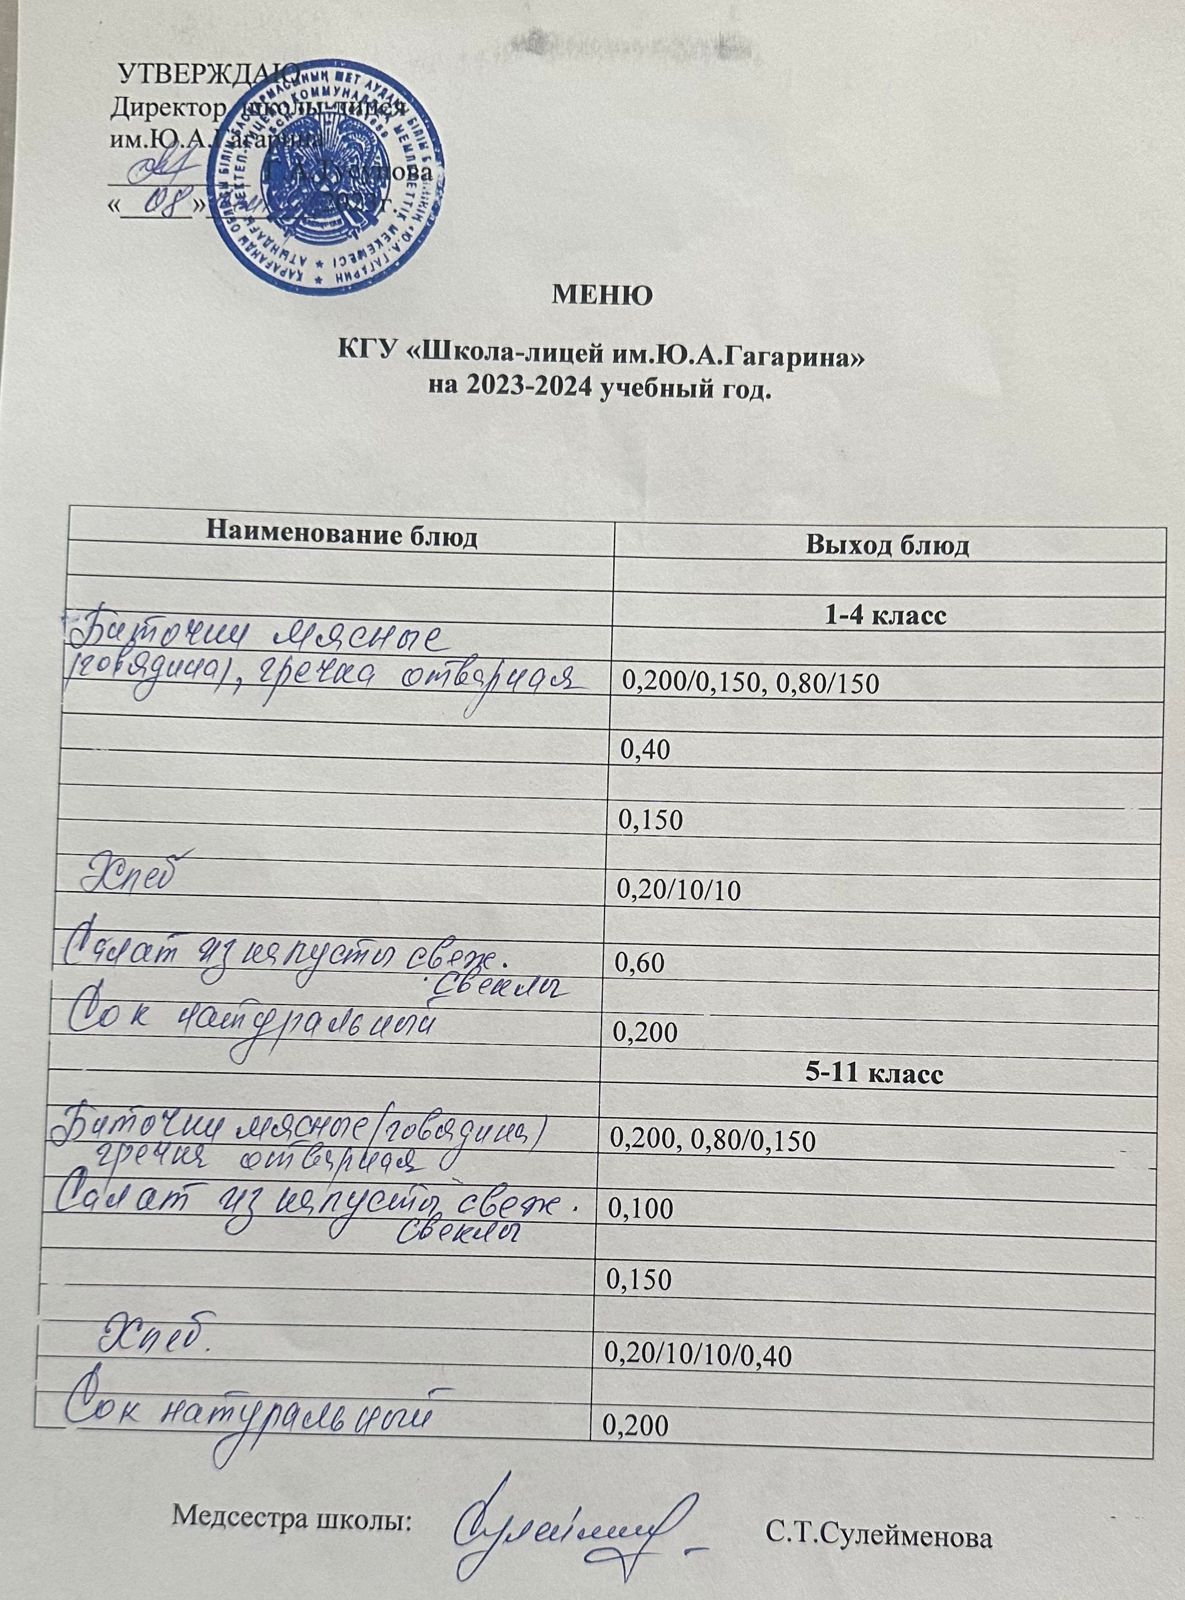 УТВЕРЖДАЮ
Директор школы-лицея
им.Ю.А.Гагарина
Г.А.Тусупова
« 08 » 2023г.
МЕНЮ
КГУ «Школа-лицей им.Ю.А.Гагарина»
на 2023-2024 учебный год.
Наименование блюд Выход блюд
1-4 класс
Биточки мясные
(говядина), гречка отварная 0,200/0,150, 0,80/150
0,40
0,150
Хлеб 0,20/10/10
Салат из капусты свеж. 0,60
свеклы
Сок натуральный 0,200
5-11 класс
Биточки мясные (говядина) 0,200, 0,80/0,150
гречка отварная
Салат из капусты свеж. 0,100
свеклы
0,150
Хлеб. 0,20/10/10/0,40
Сок натуральный 0,200
Медсестра школы: С.Т.Сулейменова